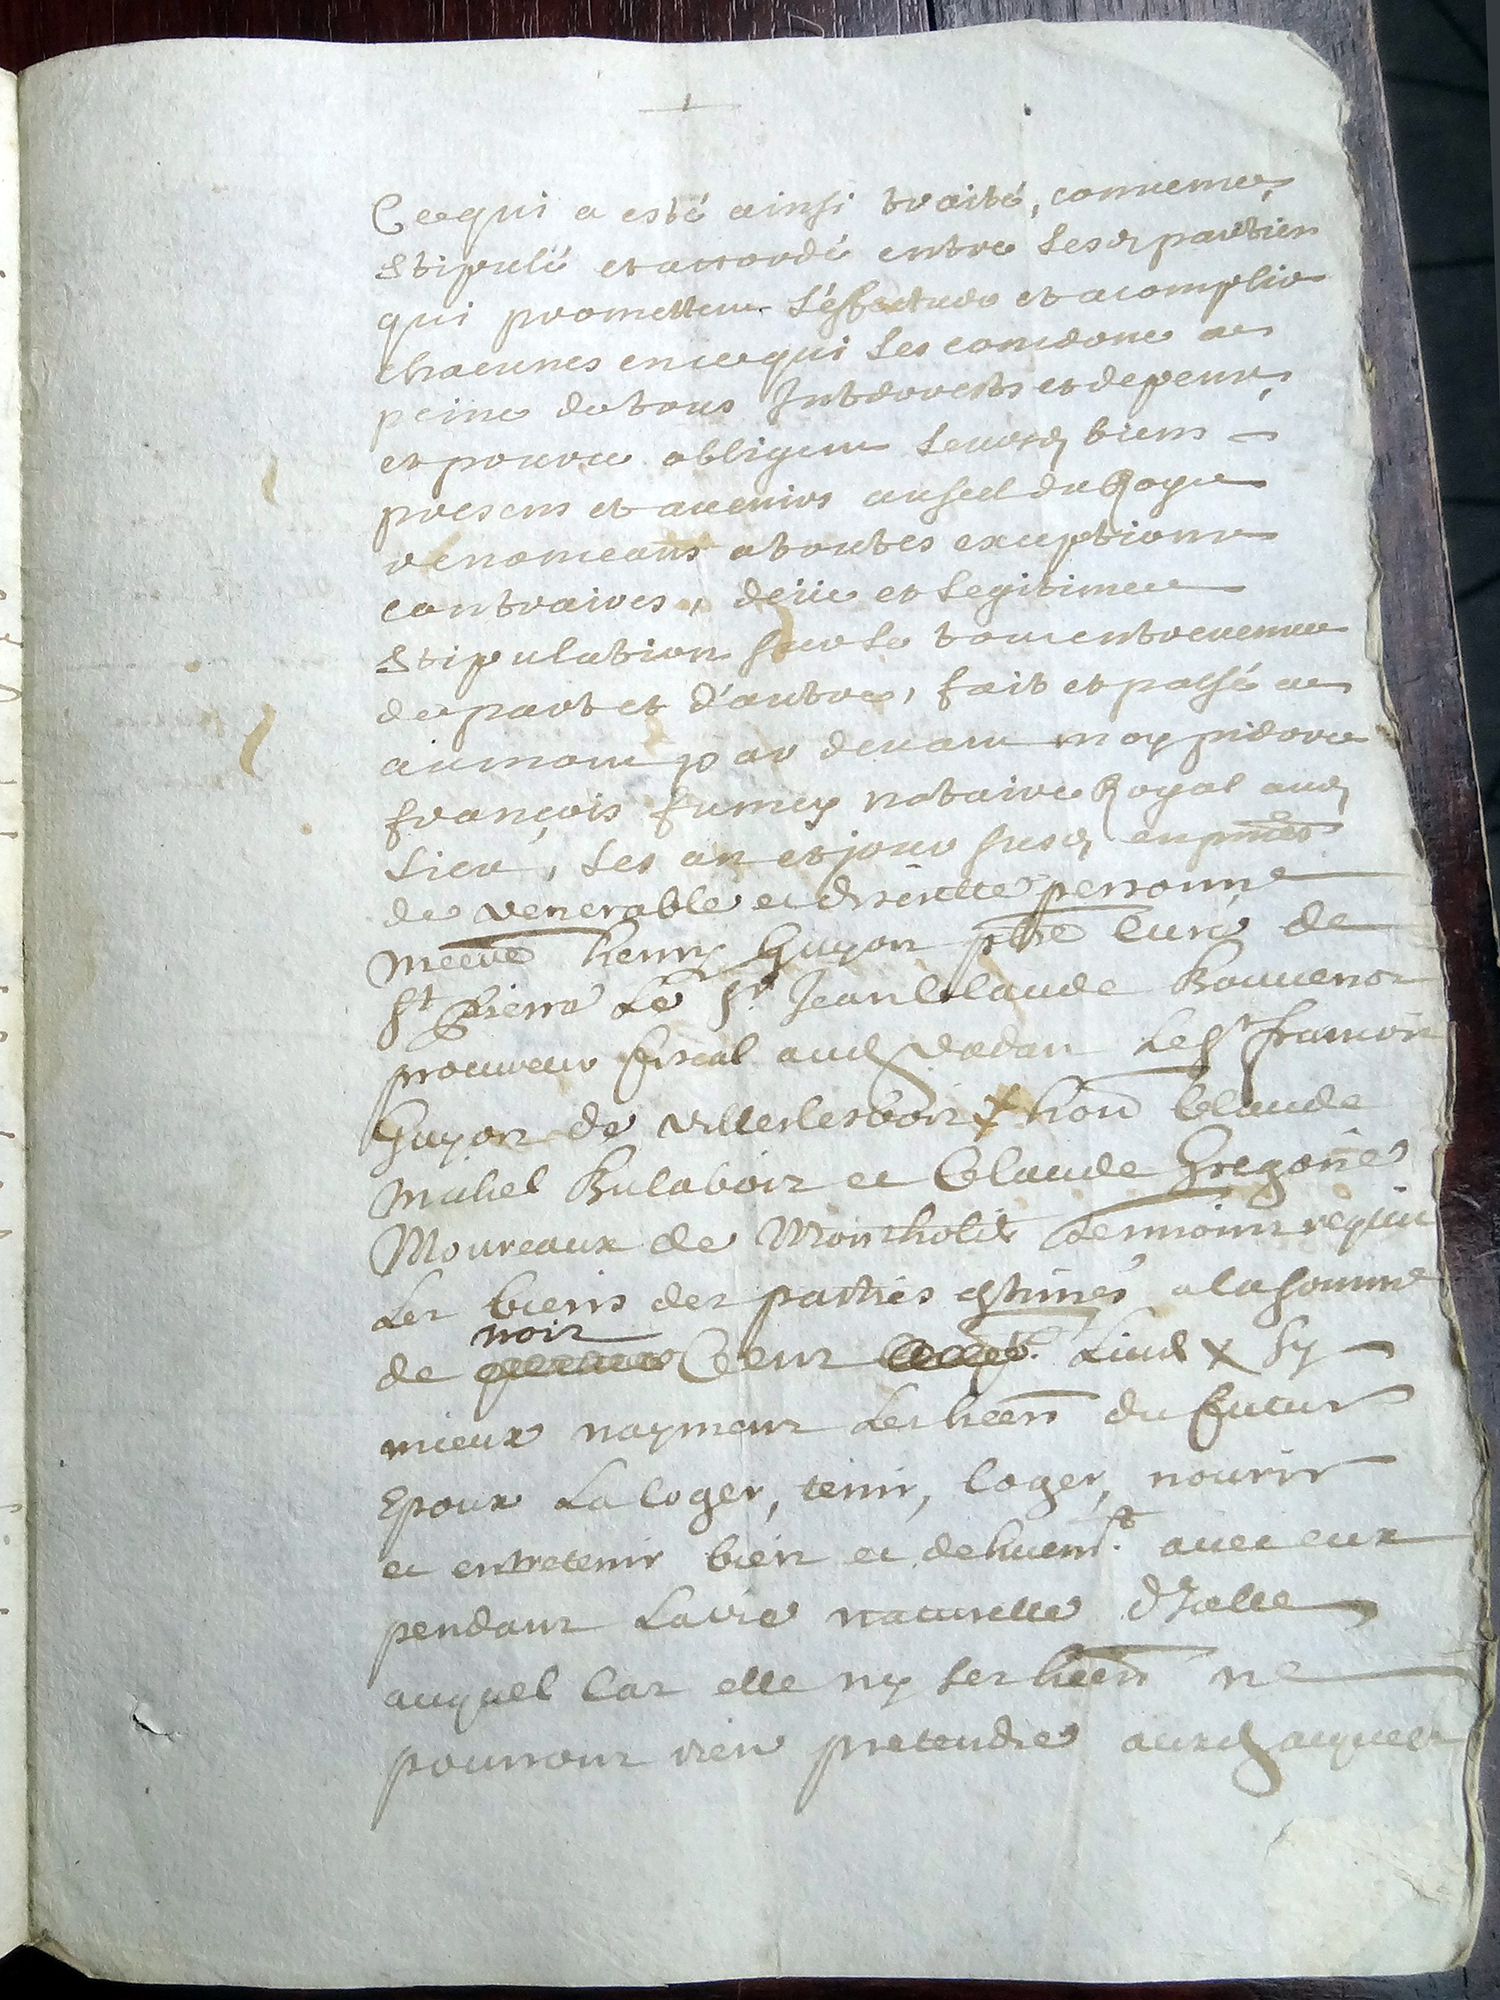 Cequi a esté ainsi traité, conuenue,
Stipulé et accordé entre lesd parties
qui promettent L'effectuer et acomplir
chacunes en cequi les concerne a
peine de tous Interests et depens,
et pour ce obligent leursd biens
presens et auenirs au seel du Roy
renonceans a toutes exceptions
contraires, deüe et legitime
Stipulation sur le tout entreuenue
de part et d'autre, fait et passé a
aumont par deuant moy pierre
françois fumey notaire Royal aud
lieu, les an et jour susd en pnces
de venerable et discrette personne
Messre henry Guyon pbre Curé de
St pierre Le Sr Jean Claude Bouuenot
procureur fiscal aud Vadan Le Sr francois
Guyon de Villerserboir x hon Claude
Michel Bulaboir et Claude Gregoire
Moureaux de Montholie temoins requis
Les biens des parties estimés a la somme
noir
de Cent Liud x Sy
mieux n'ayment Les heers du futur
Epoux La loger, tenir, loger, nourir
et entretenir bien et dehuemt auec eux
pendant La vie naturelle d'Icelle
auquel Cas elle ny ses heers ne
pourront rien pretendre auxd acquets